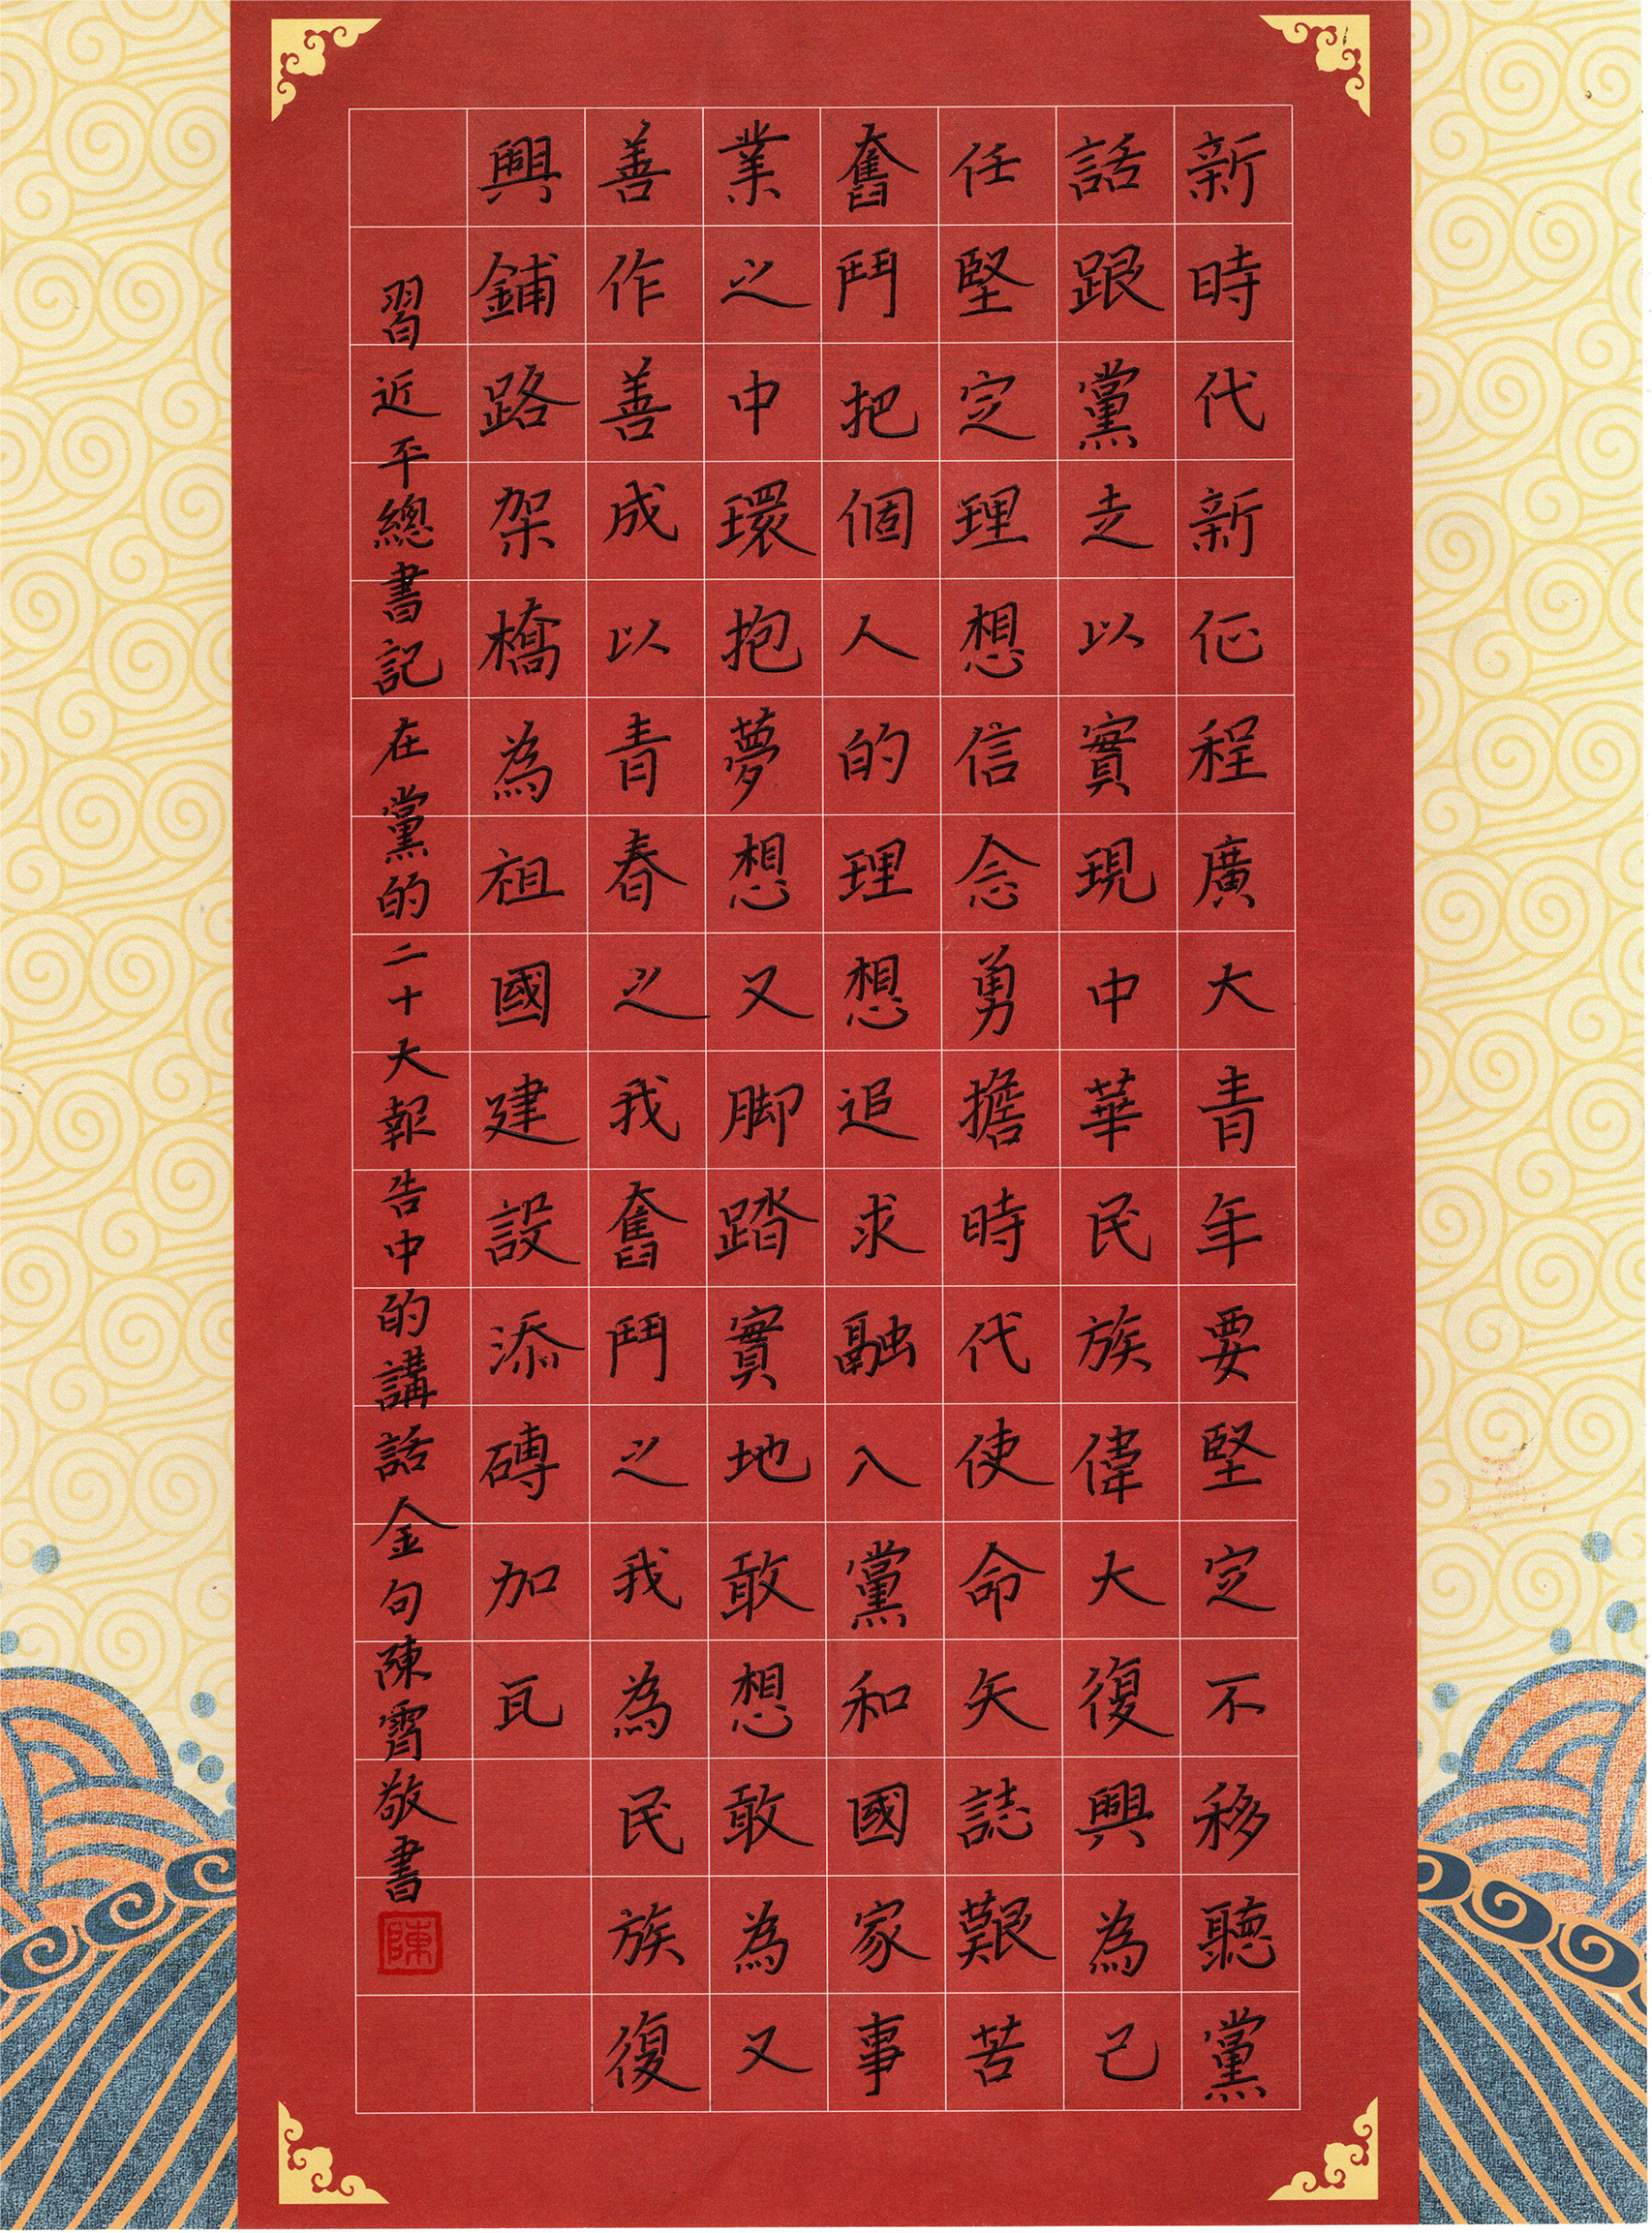 新時代新征程廣大青年要堅定不移聽黨
話跟黨走以實現中華民族偉大復興為己
任堅定理想信念勇擔時代使命矢誌艱苦
奮鬥把個人的理想追求融入黨和國家事
業之中環抱夢想又脚踏實地敢想敢為又
善作善成以青春之我奮鬥之我為民族復
興鋪路架橋為祖國建設添磚加瓦
習近平總書記在黨的二十大報告中的講話金句陳霄敬書
陳